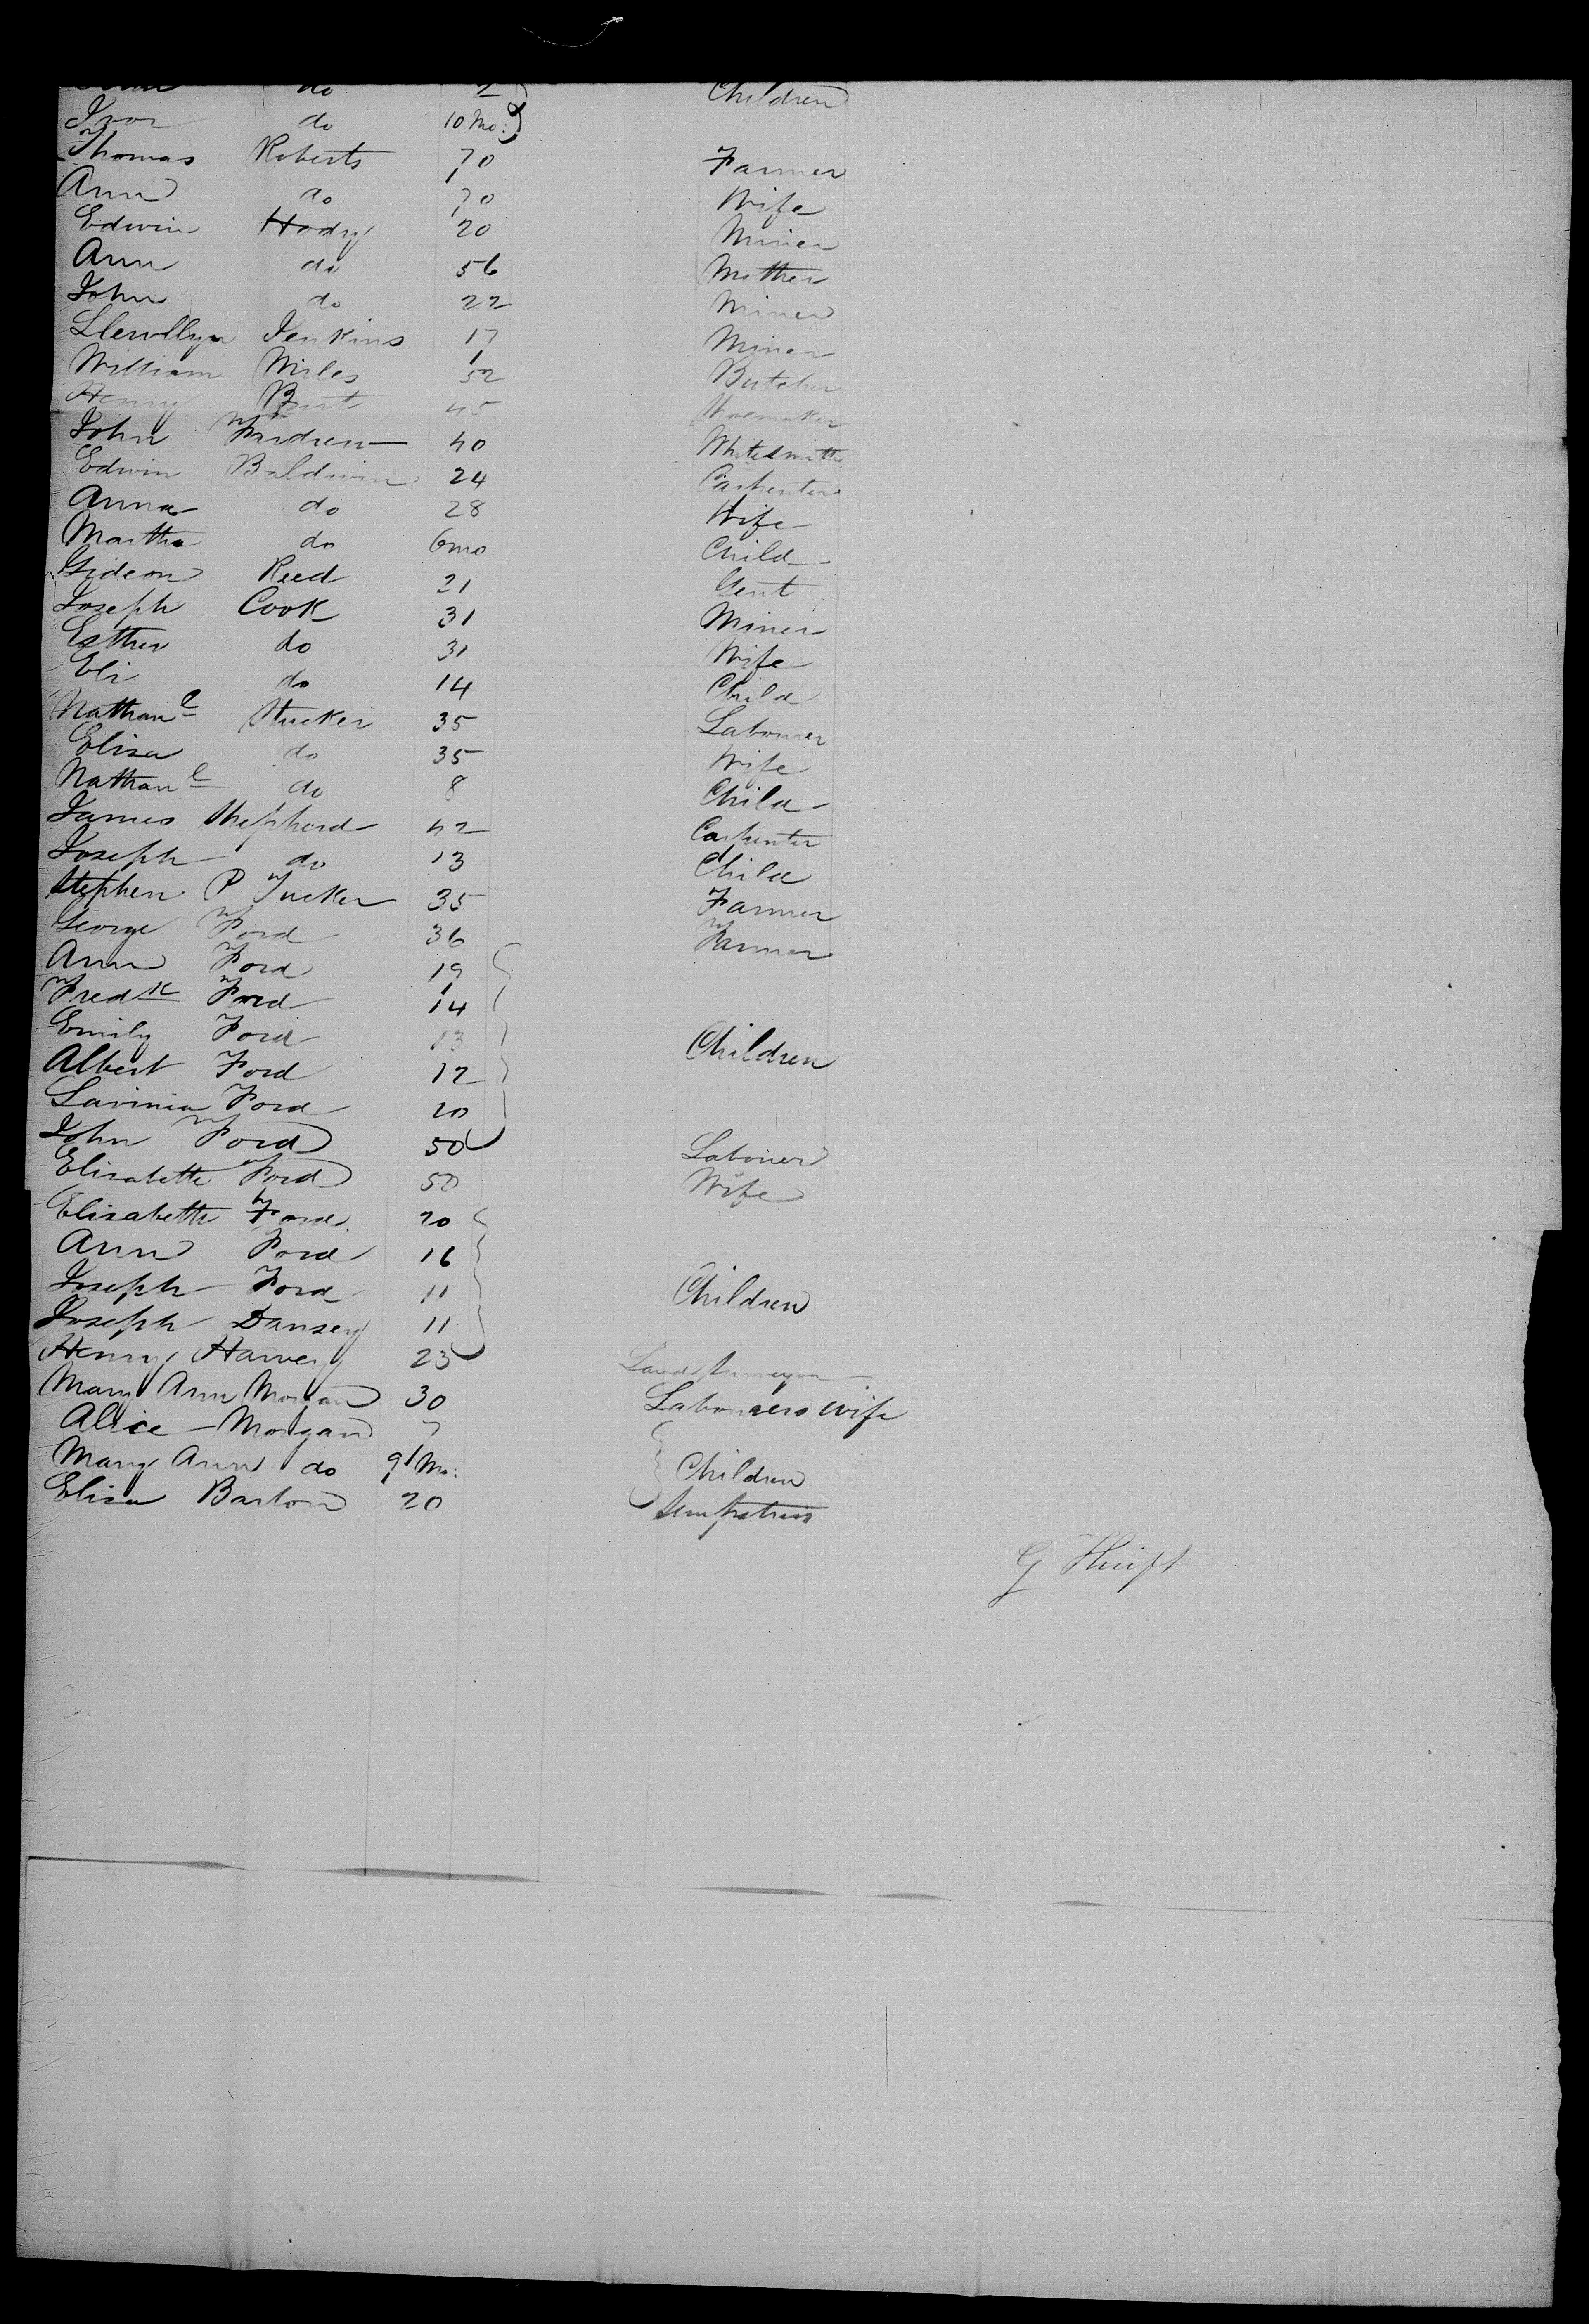 do 2 Children
Ivor do 10 Mo:
Thomas Roberts 70 Farmer
Ann do 70 Wife
Edwin Hody 20 Miner
Ann do 56 Mother
John do 22 Miner
Llewllyn Jenkins 17 Miner
William Miles 52 Butcher
Henry 45 Shoemaker
John 40 Whitesmith
Edwin Baldwin 24 Carpenter
Anna do 28 Wife
Martha do 6 mo Child
Gideon Reed 21 Gent
Joseph Cook 31 Miner
Esther do 31 Wife
Eli do 14 Child
Nathanl Stucker 35 Labourer
Elisa do 35 Wife
Nathanl do 8 Child
James Shepherd 42 Carpenter
Joseph do 13 Child
Stephen P Tucker 35 Farmer
George Ford 36 Farmer
Ann Ford 19
Fredk Ford 14
Emily Ford 13 Children
Albert Ford 12
Lavinia Ford 20
John Ford 50 Labourer
Elisabeth Ford 50 Wife
Elisabeth Ford 20
Ann Ford 16
Joseph Ford 11 Children
Joseph Dansey 11
Henry Harvey 23 Land Surveyor
Mary Ann Morgan 30 Labourers wife
Alice Morgan 7
Mary Ann do 9 Mo: Children
Elisa Barton 20 Sempstress
G